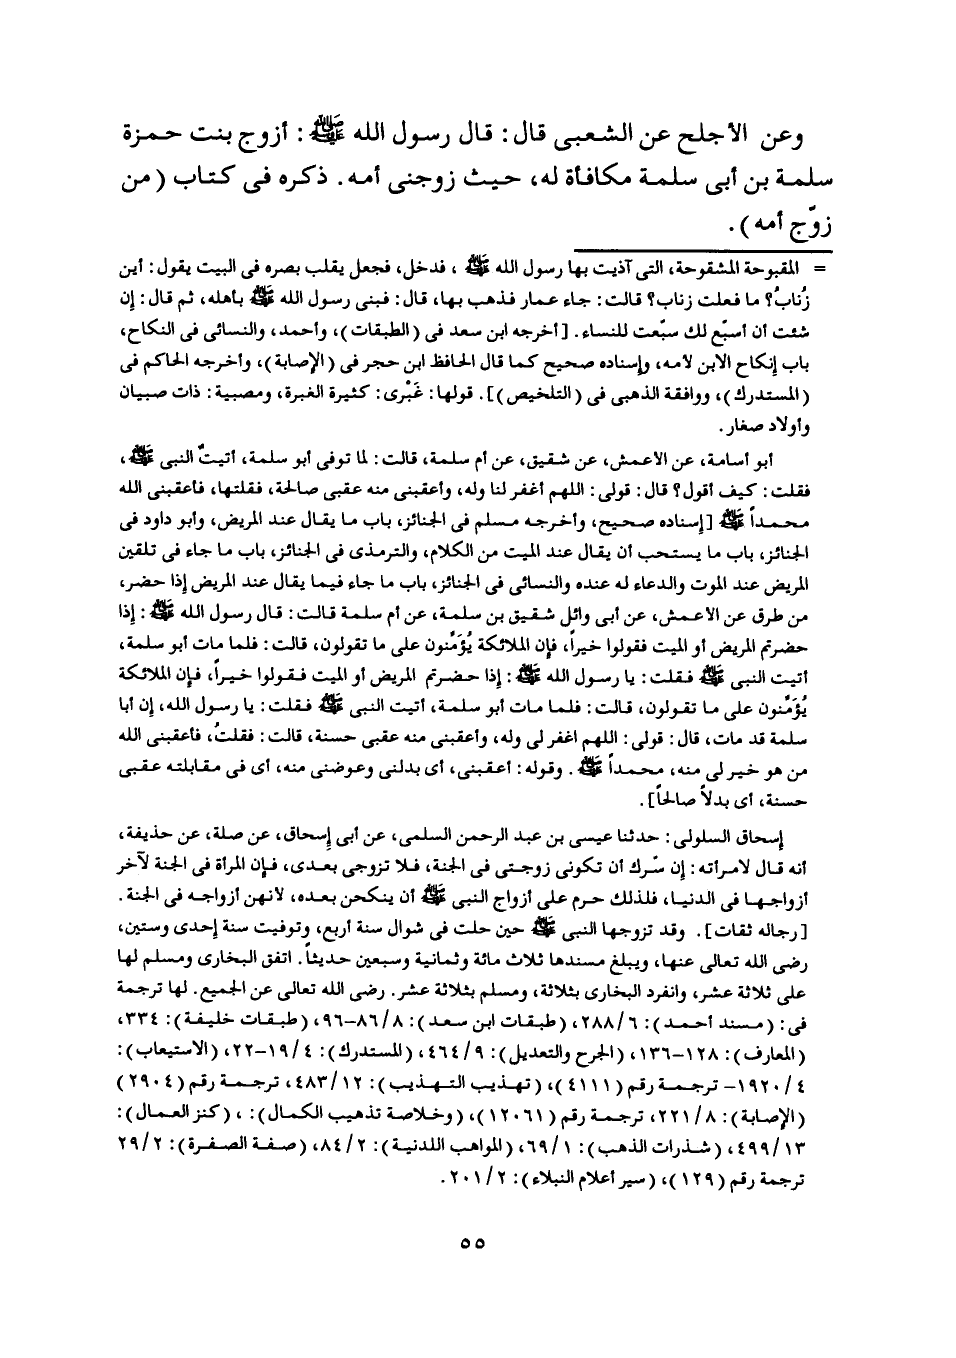 وعن الأجلح عن الشعبى قال: قال رسول الله ﷺ: أزوج بنت حمزة
سلمة بن أبى سلمة مكافأة له، حيث زوجنى أمه. ذكره فى كتاب (من
زوّج أمه).
= المقبوحة المشقوحة، التى آذيت بها رسول الله ﷺ، فدخل، فجعل يقلب بصره فى البيت يقول: أين
زُنابُ؟ ما فعلت زناب؟ قالت: جاء عمار فذهب بها، قال: فبنى رسول الله ﷺ بأهله، ثم قال: إن
شئت أن أسبّع لك سبّعت للنساء. [أخرجه ابن سعد فى (الطبقات)، وأحمد، والنسائى فى النكاح،
باب إنكاح الابن لأمه، وإسناده صحيح كما قال الحافظ ابن حجر فى (الإصابة)، وأخرجه الحاكم فى
(المستدرك)، ووافقة الذهبى فى (التلخيص)]. قولها: غَبْرى: كثيرة الغبرة، ومصبية: ذات صبيان
وأولاد صغار.
أبو أسامة، عن الاعمش، عن شقيق، عن أم سلمة، قالت: لما توفى أبو سلمة، أتيتُ النبى ﷺ،
فقلت: كيف أقول؟ قال: قولى: اللهم أغفر لنا وله، وأعقبنى منه عقبى صالحة، فقلتها، فأعقبنى الله
محمداً ﷺ [إسناده صحيح، وأخرجه مسلم فى الجنائز، باب ما يقال عند المريض، وأبو داود فى
الجنائز، باب ما يستحب أن يقال عند الميت من الكلام، والترمذى فى الجنائز، باب ما جاء فى تلقين
المريض عند الموت والدعاء له عنده والنسائى فى الجنائز، باب ما جاء فيما يقال عند المريض إذا حضر،
من طرق عن الاعمش، عن أبى وائل شقيق بن سلمة، عن أم سلمة قالت: قال رسول الله ﷺ: إذا
حضرتم المريض أو الميت فقولوا خيراً، فإن الملائكة يُؤَمِّنون على ما تقولون، قالت: فلما مات أبو سلمة،
أتيت النبى ﷺ فقلت: يا رسول الله ﷺ: إذا حضرتم المريض أو الميت فقولوا خيراً، فإن الملائكة
يُؤَمِّنون على ما تقولون، قالت: فلما مات أبو سلمة، أتيت النبى ﷺ فقلت: يا رسول الله، إن أبا
سلمة قد مات، قال: قولى: اللهم اغفر لى وله، وأعقبنى منه عقبى حسنة، قالت: فقلتُ، فأعقبنى الله
من هو خير لى منه، محمداً ﷺ. وقوله: أعقبنى، أى بدلنى وعوضنى منه، أى فى مقابلته عقبى
حسنة، أى بدلاً صالحاً].
إسحاق السلولى: حدثنا عيسى بن عبد الرحمن السلمى، عن أبى إسحاق، عن صلة، عن حذيفة،
أنه قال لامرأته: إن سّرك أن تكونى زوجتى فى الجنة، فلا تزوجى بعدى، فإن المرأة فى الجنة لآخر
أزواجها فى الدنيا، فلذلك حرم على أزواج النبى ﷺ أن ينكحن بعده، لانهن أزواجه فى الجنة.
[رجاله ثقات]. وقد تزوجها النبى ﷺ حين حلت فى شوال سنة أربع، وتوفيت سنة إحدى وستين،
رضى الله تعالى عنها، ويبلغ مسندها ثلاث مائة وثمانية وسبعين حديثاً. اتفق البخارى ومسلم لها
على ثلاثة عشر، وانفرد البخارى بثلاثة، ومسلم بثلاثة عشر. رضى الله تعالى عن الجميع. لها ترجمة
فى: (مسند أحمد): ٢٨٨/٦، (طبقات ابن سعد): ٨٦/٨-٩٦، (طبقات خليفة): ٣٣٤،
(المعارف): ١٢٨-١٣٦، (الجرح والتعديل): ٤٦٤/٩، (المستدرك): ١٩/٤-٢٢، (الاستيعاب):
١٩٢٠/٤- ترجمة رقم (٤١١١)، (تهذيب التهذيب): ٤٨٣/١٢، ترجمة رقم (٢٩٠٤)
(الإصابة): ٢٢١/٨، ترجمة رقم (١٢٠٦١)، (وخلاصة تذهيب الكمال): ، (كنز العمال):
٤٩٩/١٣، (شذرات الذهب): ٦٩/١، (المواهب اللدنية): ٨٤/٢، (صفة الصفرة): ٢٩/٢
ترجمة رقم (١٢٩)، (سير أعلام النبلاء): ٢٠١/٢.
٥٥